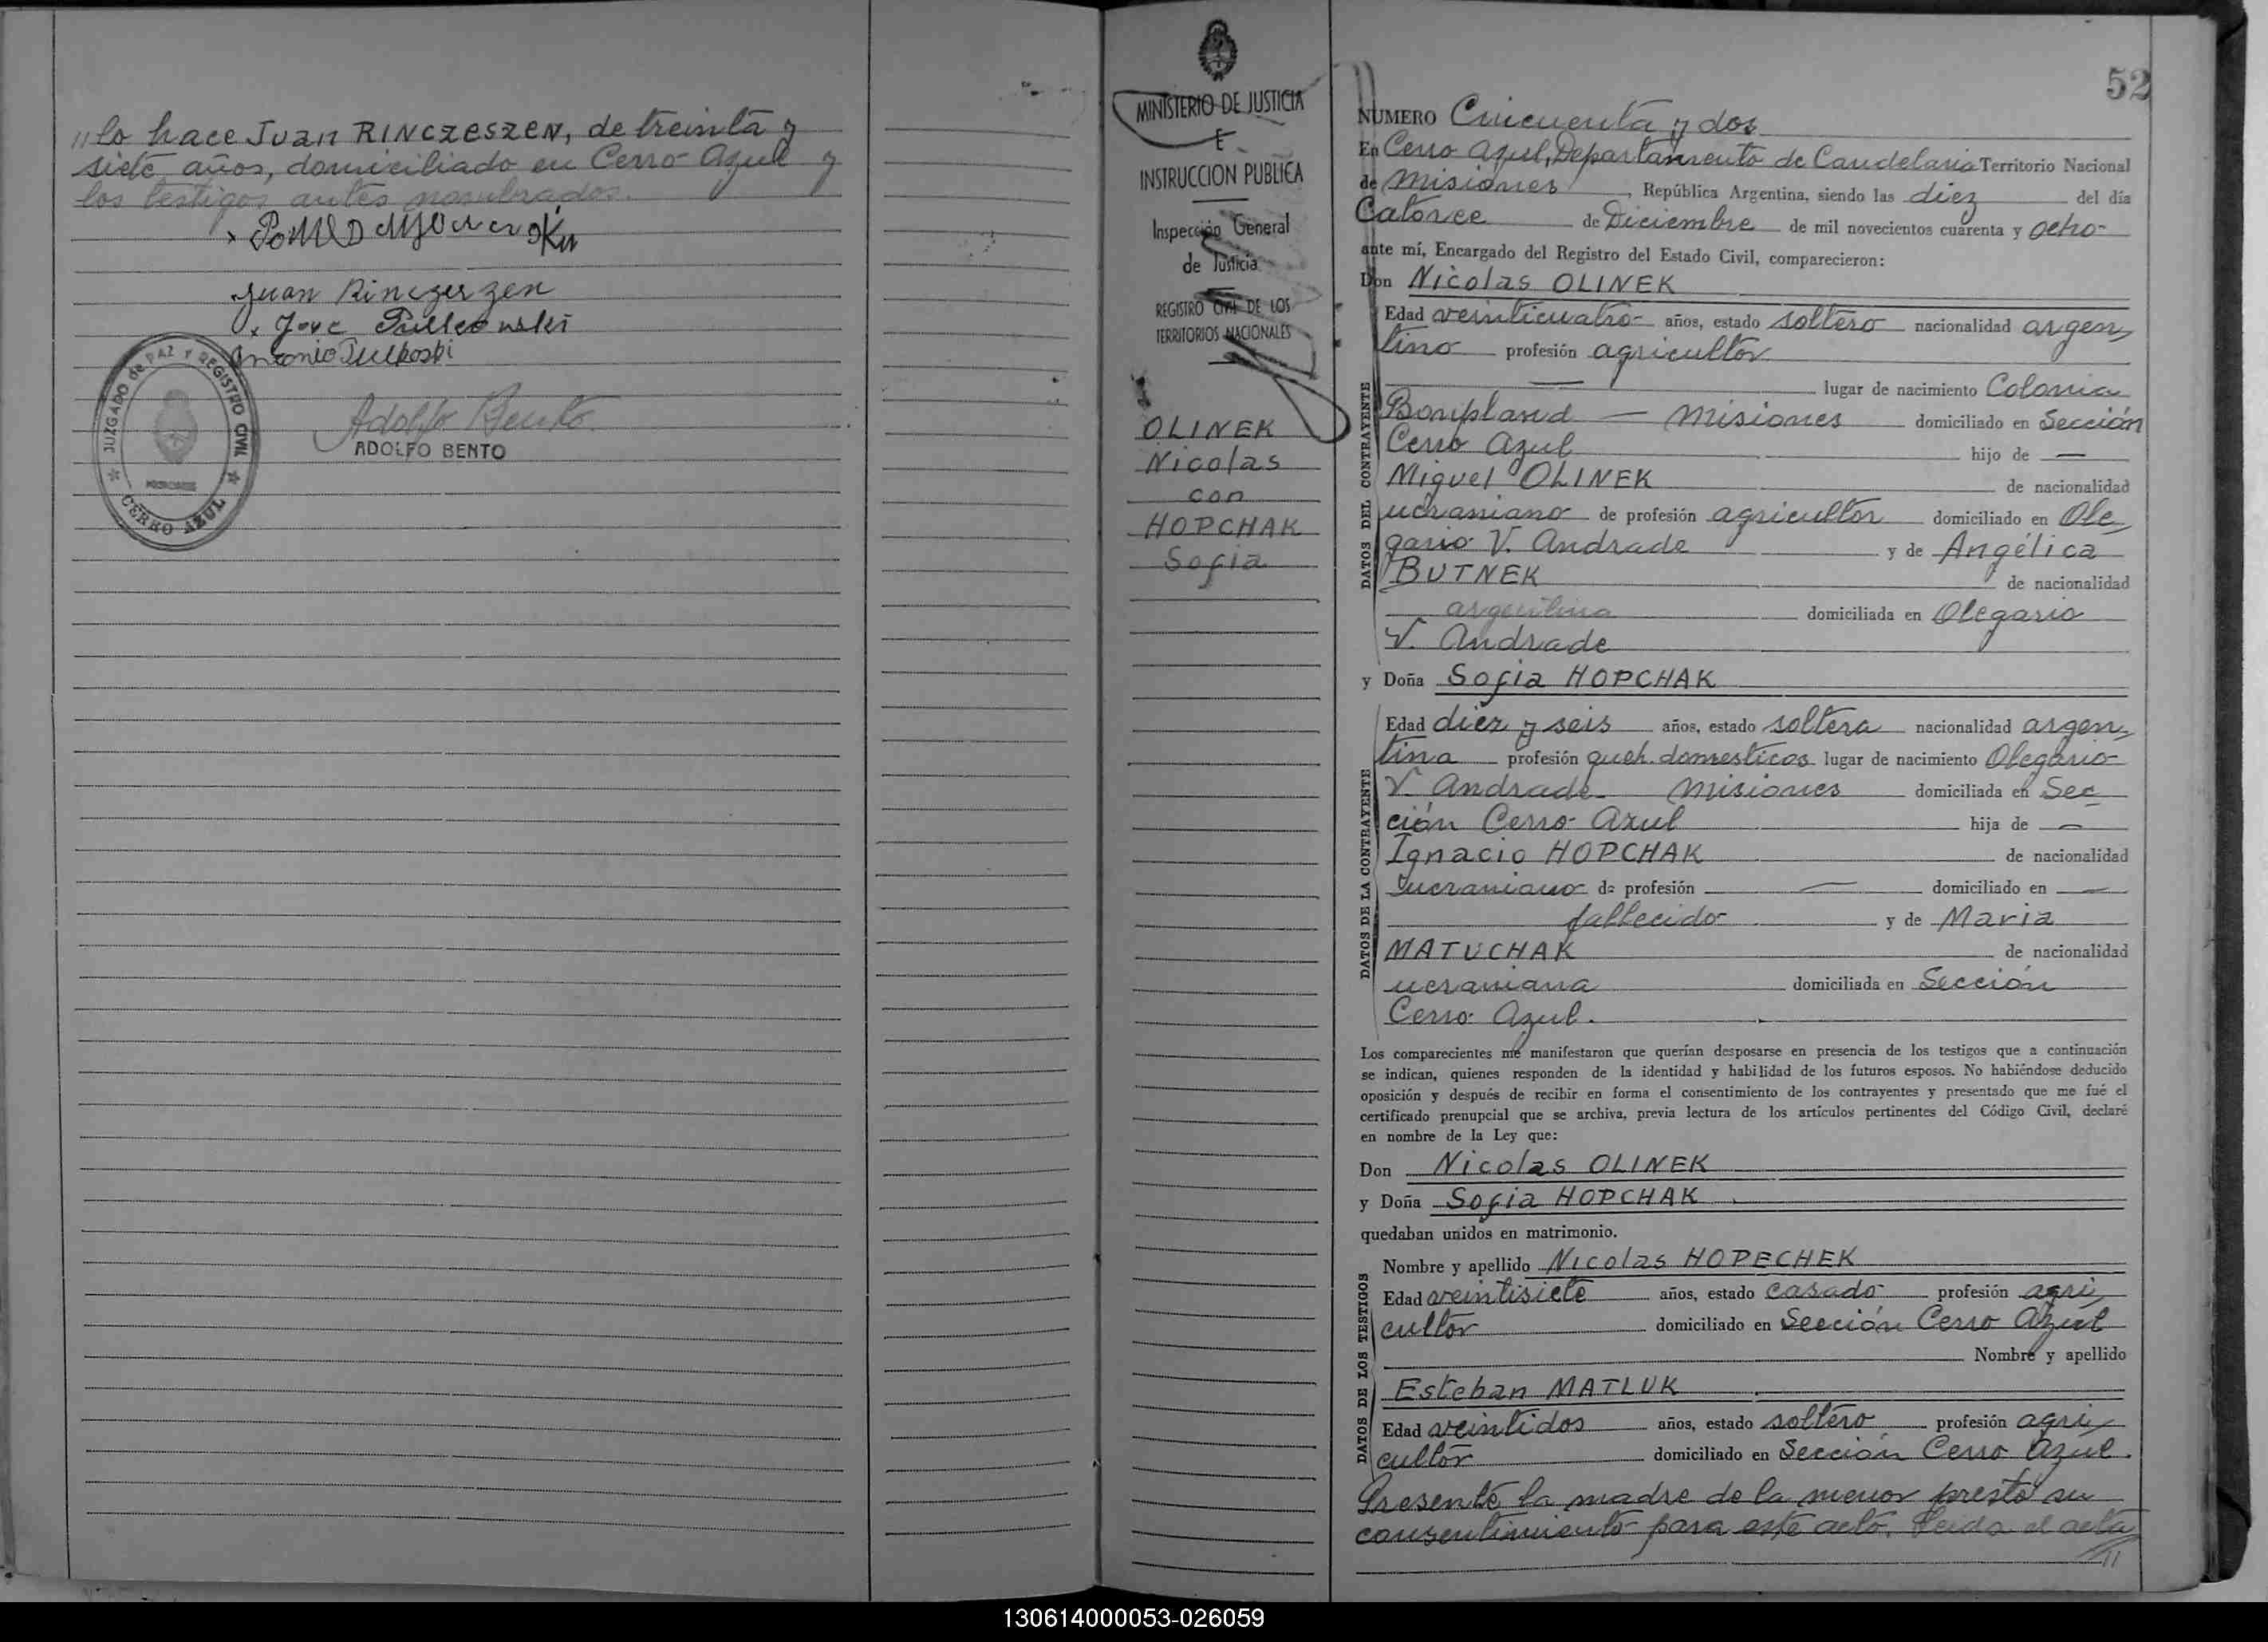 "lo hace Juan RINCZESZEN, de treinta y
siete años, domiciliado en Cerro Azul y
los testigos antes nombrados.
Juan Rinczeszen
Antonio Pulkoski
JUZGADO de PAZ Y REGISTRO CIVIL
CERRO AZUL
Adolfo Bento
ADOLFO BENTO
MINISTERIO DE JUSTICIA
E
INSTRUCCION PUBLICA
Inspección General
de Justicia
REGISTRO CIVIL DE LOS
TERRITORIOS NACIONALES
OLINEK
Nicolas
con
HOPCHAK
Sofia
52
NUMERO Cincuenta y dos
En Cerro Azul, Departamento de Candelaria Territorio Nacional
de Misiones, República Argentina, siendo las diez del día
Catorce de Diciembre de mil novecientos cuarenta y ocho
ante mí, Encargado del Registro del Estado Civil, comparecieron:
Don Nicolas OLINEK
DATOS DEL CONTRAYENTE
Edad veinticuatro años, estado soltero nacionalidad argen
tino profesión agricultor
lugar de nacimiento Colonia
Bonpland — Misiones domiciliado en Sección
Cerro Azul hijo de —
Miguel OLINEK de nacionalidad
ucraniano de profesión agricultor domiciliado en Ole
gario V. Andrade y de Angélica
BUTNEK de nacionalidad
argentina domiciliada en Olegario
V. Andrade
y Doña Sofia HOPCHAK
DATOS DE LA CONTRAYENTE
Edad diez y seis años, estado soltera nacionalidad argen
tina profesión queh. domesticos lugar de nacimiento Olegario
V. Andrade - Misiones domiciliada en Sec
ción Cerro Azul hija de —
Ignacio HOPCHAK de nacionalidad
ucraniano de profesión — domiciliado en —
fallecido y de Maria
MATUCHAK de nacionalidad
ucraniana domiciliada en Sección
Cerro Azul.
Los comparecientes me manifestaron que querían desposarse en presencia de los testigos que a continuación
se indican, quienes responden de la identidad y habilidad de los futuros esposos. No habiéndose deducido
oposición y después de recibir en forma el consentimiento de los contrayentes y presentado que me fué el
certificado prenupcial que se archiva, previa lectura de los artículos pertinentes del Código Civil, declaré
en nombre de la Ley que:
Don Nicolas OLINEK
y Doña Sofia HOPCHAK
quedaban unidos en matrimonio.
DATOS DE LOS TESTIGOS
Nombre y apellido Nicolas HOPECHEK
Edad veintisiete años, estado casado profesión agri
cultor domiciliado en Sección Cerro Azul
Nombre y apellido
Esteban MATLUK
Edad veintidos años, estado soltero profesión agri
cultor domiciliado en Sección Cerro Azul.
Presente la madre de la menor prestó su
consentimiento para este acto. Leida el acta
"
130614000053-026059